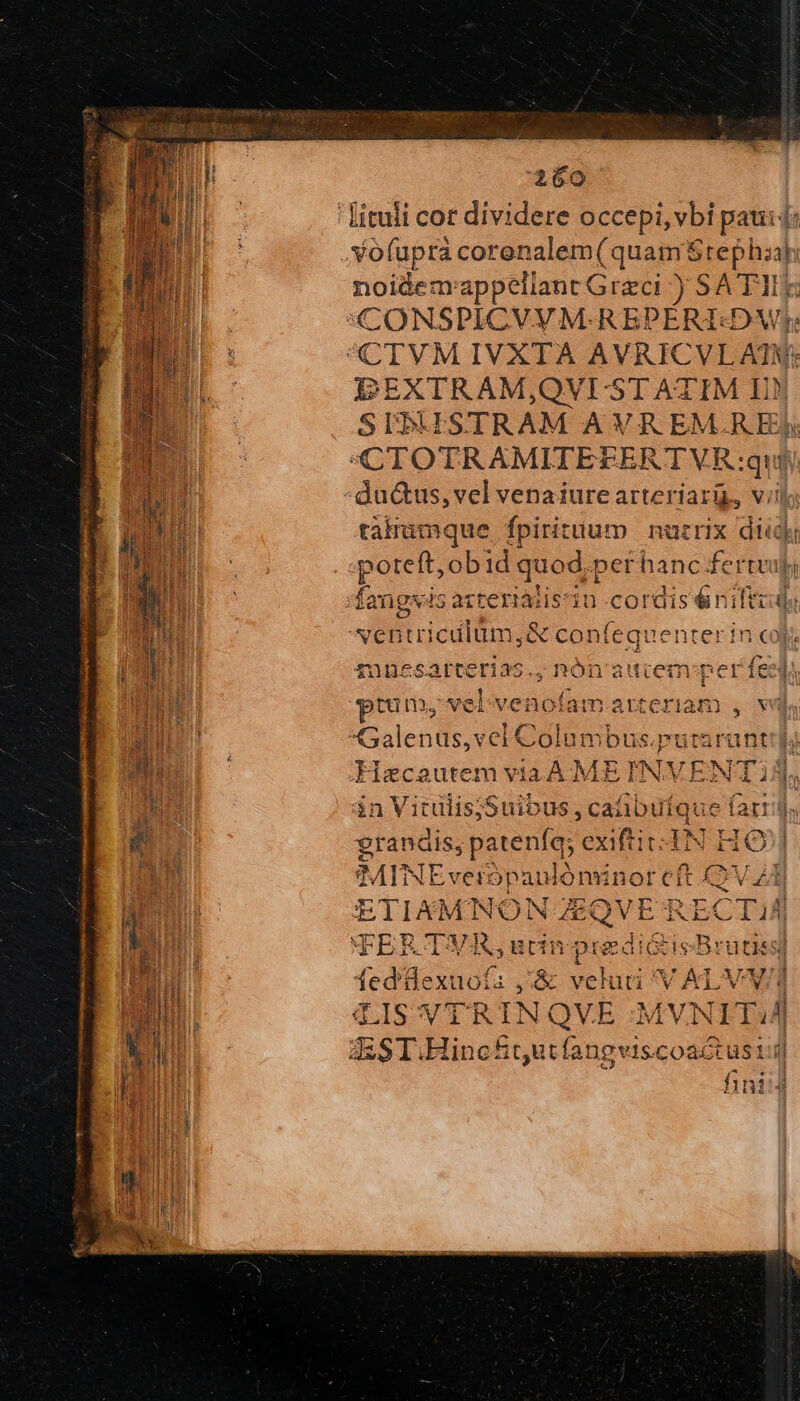 160
lituli cor dividere occepi, vbi paui
vò ſuprà coronalem (quam Stepha
noidem appellant Græci) SATI
CONSPICVVM REPERI DV
CTVM IVXTA AVRICVLAM
DEXTRAM, QVI STATIM IN
SINISTRAM AVREM RE
CTO TRAMITE FERTVR: qui
ductus, vel vena iure arteriarū, vi
taliumque ſpirituum nutrix dici
poteſt, ob id quod per hanc fertur
ſangvis arterialis in cordis ſiniſtrū
ventriculum, & conſequenter in o
mnes arterias, non autem per ſe
ptum, vel venoſam arteriam, vt
Galenus, vel Columbus putarunt.
Hæc autem via A ME INVENTA
in Vitulis, Suibus, caſibuſque ſatis
grandis, patenſq; exiſtit. IN HO
MINE verò paulò minor eſt QVÆ
ETIAM NON ÆQVE RECTA
FERTVR, ut in prædictis Brutis
ſed flexuoſa, & veluti VALVV
LIS VTRINQVE MVNITA
EST. Hinc fit, ut ſangvis coactus
fini